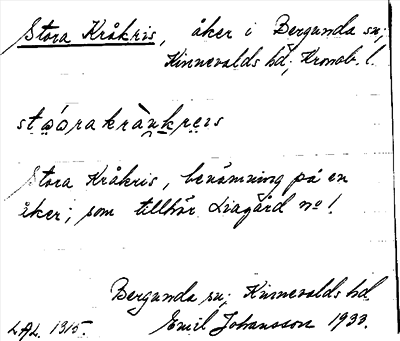 Stora Kråkris, åker i Bergunda sn;
Kinnevalds hd; Kronob. l.
Stora Kråkris, benämning på en
åker; som tillhör Liagård no 1.
Bergunda sn; Kinnevalds hd.
LAL. 1315. Emil Johansson 1933.